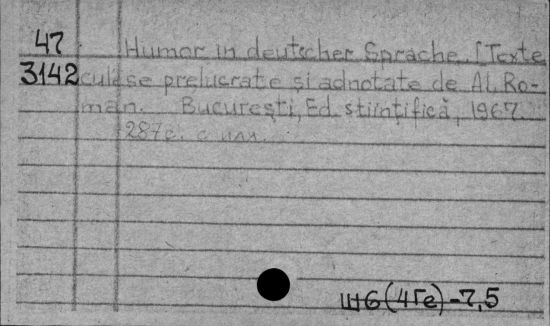 47 Humor in deutscher Sprache. [Texte
3142 culese prelucrate și adnotate de Al. Ro-
man. București, Ed. științifică, 1967.
287с. с илл.
Ш6(4Ге)-7,5